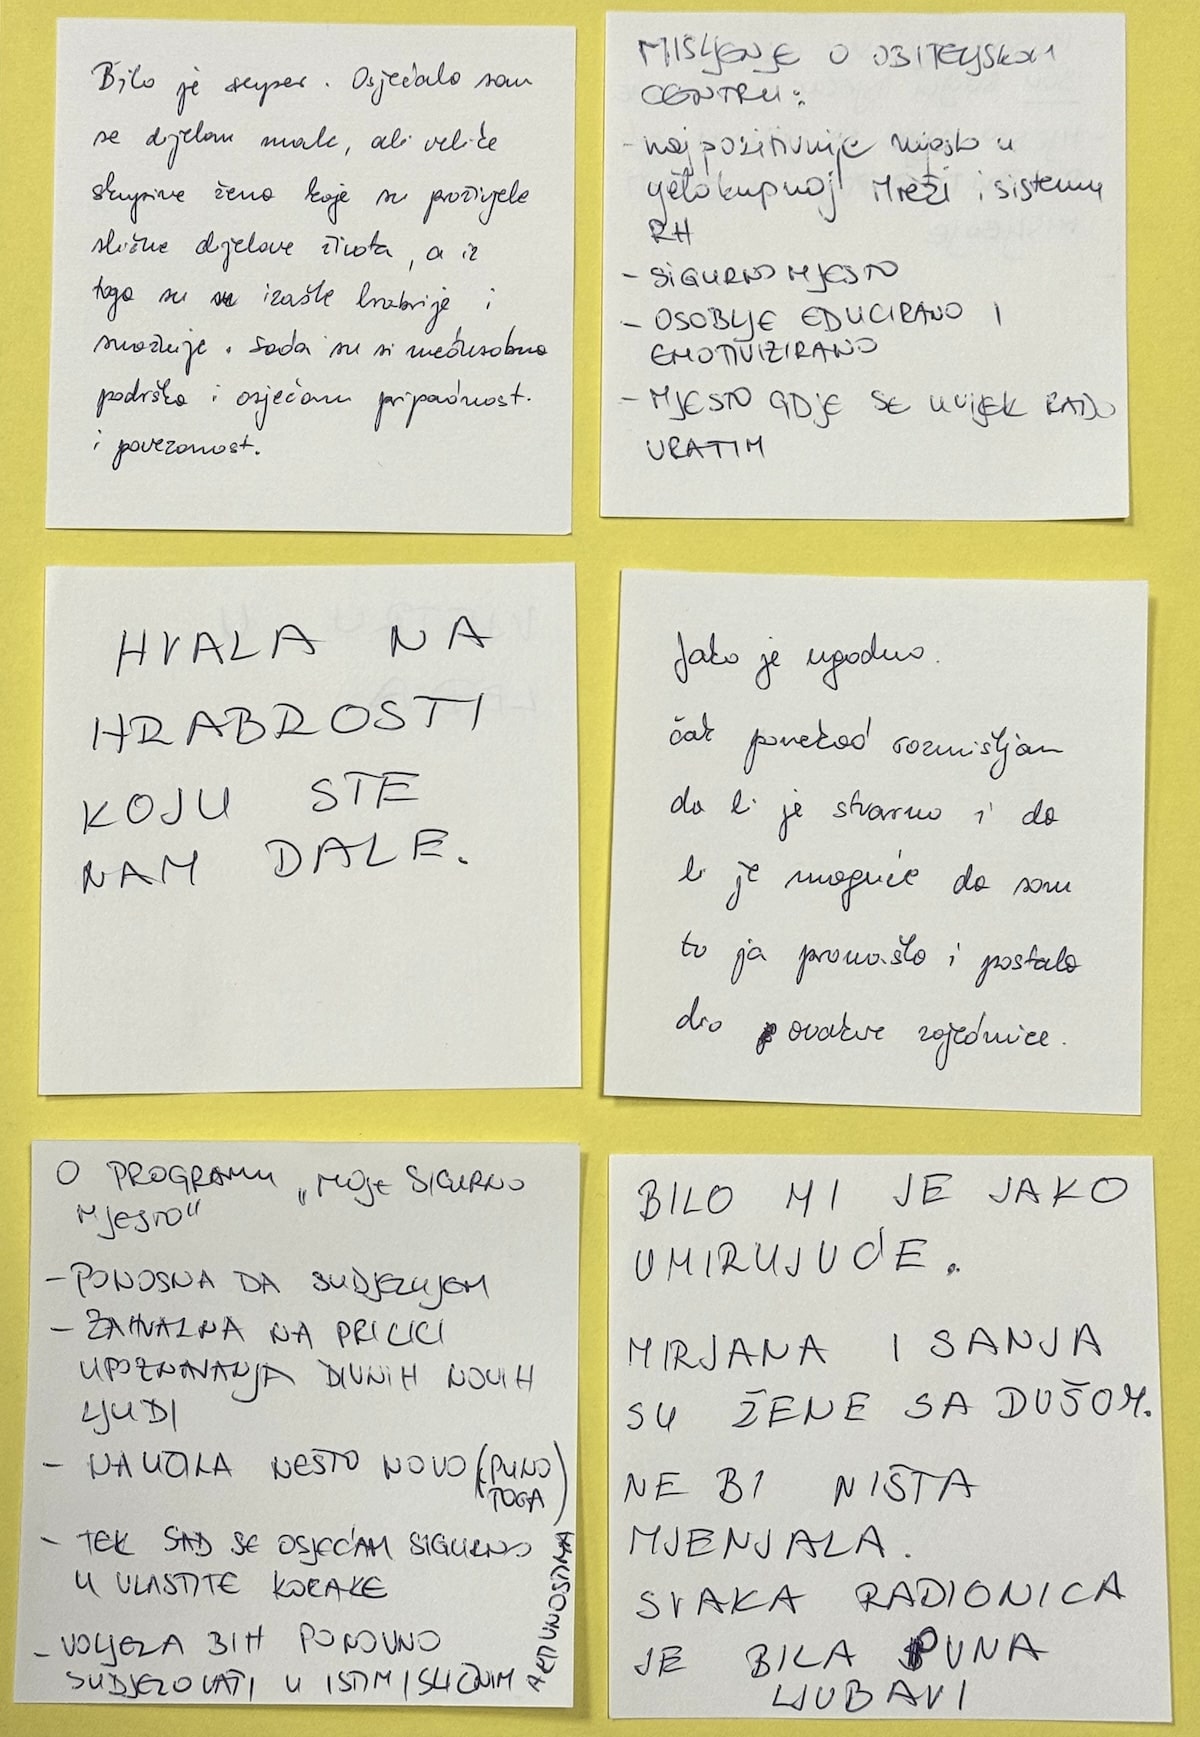 Bilo je super. Osjećala sam
se dijelom male, ali velike
skupine žena koje su proživjele
slične dijelove života, a iz
toga su izašle hrabrije i
snažnije. Sada su si međusobna
podrška i osjećam pripadnost
i povezanost.
MIŠLJENJE O OBITELJSKOM
CENTRU:
- najpozitivnije mjesto u
cjelokupnoj Mreži i sistemu
RH
- SIGURNO MJESTO
- OSOBLJE EDUCIRANO I
EMOTIVIZIRANO
- MJESTO GDJE SE UVIJEK RADO
VRATIM
HVALA NA
HRABROSTI
KOJU STE
NAM DALE.
Jako je ugodno.
čak ponekad razmišljam
da li je stvarno i da
li je moguće da sam
to ja pronašla i postala
dio ovakve zajednice.
O PROGRAMU „MOJE SIGURNO
MJESTO“
- PONOSNA DA SUDJELUJEM
- ZAHVALNA NA PRILICI
UPOZNAVANJA DIVNIH NOVIH
LJUDI
- NAUČILA NEŠTO NOVO (PUNO
TOGA)
- TEK SAD SE OSJEĆAM SIGURNO
U VLASTITE KORAKE
- VOLJELA BIH PONOVNO
SUDJELOVATI U ISTIM I SLIČNIM
AKTIVNOSTIMA
BILO MI JE JAKO
UMIRUJUĆE.
MIRJANA I SANJA
SU ŽENE SA DUŠOM.
NE BI NIŠTA
MJENJALA.
SVAKA RADIONICA
JE BILA PUNA
LJUBAVI